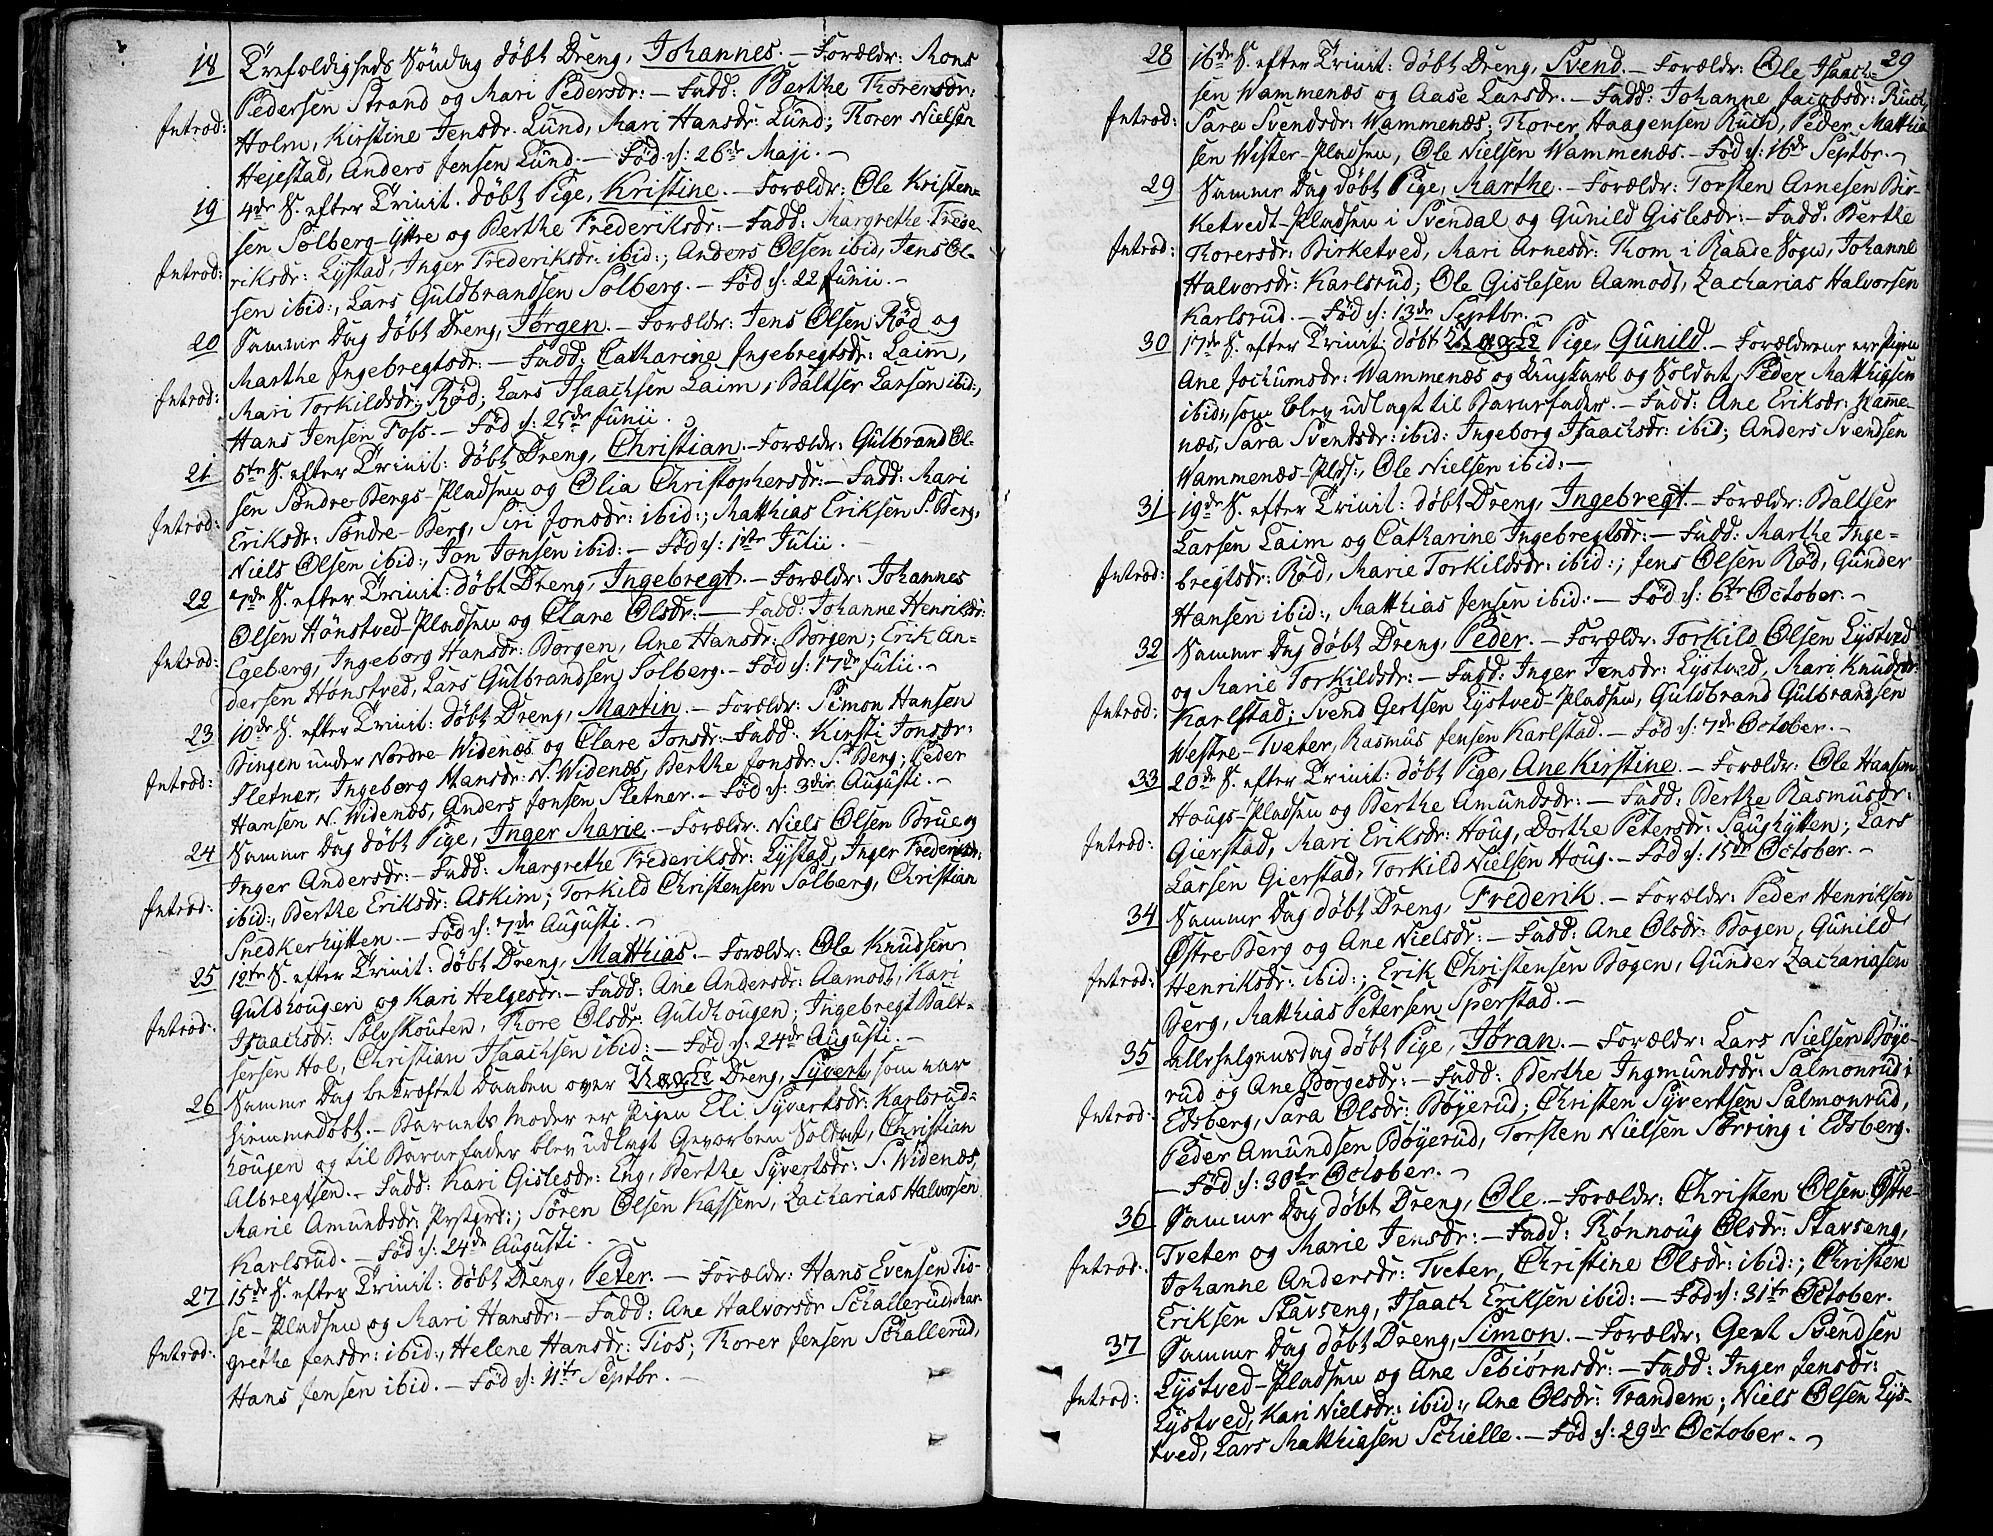 18 Trefoldigheds Söndag döbt Dreng, Johannes. — Forældr: Mons
Pedersen Strand og Mari Pedersdr: — Fadd: Berthe Thorersdr:
Introd: Holm, Kirstine Jensdr. Lund, Mari Hansdr: Lund; Thorer Nielsen
Hejestad, Anders Jensen Lund. — Föd d: 26de Maji. —
19 4de S. efter Trinit. döbt Pige, Kristine. — Forældr: Ole Kristen-
sen Solberg-Yttre og Berthe Frederiksdr: — Fadd: Margrethe Frede-
Introd: riksdr: Lystad, Inger Frederiksdr: ibid:, Anders Olsen ibid, Jens Ol-
sen ibid:, Lars Guldbrandsen Solberg. — Föd d: 22 Junii. —
20 Samme Dag döbt Dreng, Jørgen. — Forældr: Jens Olsen Röd og
Marthe Ingebregtsdr: — Fadd: Catharine Ingebregtsdr: Laim,
Introd: Mari Torkildsdr: Röd; Lars Isaachsen Laim, Baltser Larsen ibid:,
Hans Jensen Foss. — Föd d: 25de Junii.
21 6te S. efter Trinit: döbt Dreng, Christian. — Forældr: Gulbrand Ol-
sen Søndre Bergs-Pladsen og Olia Christophersdr: — Fadd: Mari
Introd: Eriksdr: Søndre-Berg, Siri Jonsdr: ibid:; Matthias Eriksen S. Berg,
Niels Olsen ibid:, Jon Jonsen ibid: — Föd d: 1ste Julii. —
22 7de S. efter Trinit: döbt Dreng, Ingebregt. — Forældr: Johannes
Olsen Hönstved-Pladsen og Clare Olsdr: — Fadd: Johanne Henriksdr:
Introd: Egeberg, Ingeborg Hansdr: Borgen, Ane Hansdr: Borgen; Erik An-
dersen Hönstved, Lars Gulbrandsen Solberg. — Föd d: 17de Julii. —
23 10de S. efter Trinit: döbt Dreng, Martin. — Forældr: Simon Hansen
Bingen under Nordre-Widenæs og Clare Jonsdr: — Fadd: Kirsti Jonsdr:
Introd: Sletner, Ingeborg Hansdr: N. Widenæs, Berthe Jonsdr: S. Berg; Peder
Hansen N. Widenæs, Anders Jonsen Sletner. — Föd d: 3die Augusti. —
24 Samme Dag döbt Pige, Inger Marie. — Forældr: Niels Olsen Brueg
Inger Andersdr: — Fadd: Margrethe Frederiksdr: Lystad, Inger Frederiksdr:
Introd: ibid:, Berthe Eriksdr: Askim; Torkild Christensen Solberg, Christian
Snedkerhytten. — Föd d: 7de Augusti. —
25 12te S. efter Trinit: döbt Dreng, Matthias. — Forældr: Ole Knudsen
Guldhougen og Kari Helgesdr: — Fadd: Ane Andersdr: Aamodt, Kari
Introd: Isaachsdr: Sølvskouten, Thore Olsdr: Guldhougen; Ingebregt Balt-
sersen Hol, Christian Isaachsen ibid: — Föd d: 24de Augusti. —
26 Samme Dag bekræftet Daaben over Uægte Dreng, Syvert, som var
hiemmedöbt. — Barnets Moder er Pigen Eli Syvertsdr: Karlsrud-
hougen og til Barnefader blev udlagt Gevorben Soldat, Christian
Albregtsen. — Fadd: Kari Gislesdr: Eng, Berthe Syvertsdr: S. Widenæs,
Marie Amundsdr: Pretsgrd:; Sören Olsen Kassem, Zacharias Halvorsen
Karlsrud. — Föd d: 24de Augusti. —
27 15de S. efter Trinit: döbt Dreng, Peter. — Forældr: Hans Evensen Tio-
se-Pladsen og Mari Hansdr: — Fadd: Ane Halvorsdr Schallerud, Mar-
Introd: grethe Jensdr: ibid:, Helene Hansdr: Tios; Thorer Jensen Schallerud,
Hans Jensen ibid. — Föd d: 11te Septbr. —
29
28 16de S. efter Trinit: döbt Dreng, Svend. — Forældr: Ole Isaach-
sen Wammenæs og Aase Larsdr. — Fadd: Johanne Jacobsdr: Ruch,
Introd: Sara Svendsdr: Wammenæs; Thorer Haagensen Ruch, Peder Mathia
sen Wister-Pladsen, Ole Nielsen Wammenæs. — Föd d: 16de Septbr. —
29 Samme Dag döbt Pige, Marthe. — Forældr: Torsten Arnesen Bir-
ketvedt-Pladsen i Svendal og Gunild Gislesdr: — Fadd: Berthe
Introd: Thorersdr: Birketved, Mari Arnesdr: Thom i Raade Sogn, Johanne
Halvorsdr: Karlsrud; Ole Gislesen Aamodt, Zacharias Halvorsen
Karlsrud. — Föd d: 13de Septbr. —
30 17de S. efter Trinit: döbt Uægte Pige, Gunild. — Forældrene ere Pigen
Ane Jochumsdr: Wammenæs og Ungkarl og Soldat, Peder Matthiasen
ibid:, som blev udlagt til Barnefader. — Fadd: Ane Eriksdr: Wame-
næs, Sara Svendsdr: ibid: Ingeborg Isaachsdr: ibid; Anders Svendsen
Wammenæs-Plds:, Ole Nielsen ibid: —
31 19de S. efter Trinit: döbt Dreng, Ingebregt. — Forældr: Baltser
Larsen Laim og Catharine Ingebregtsdr: — Fadd: Marthe Inge-
Introd: bregtsdr: Röd, Marie Torkildsdr: ibid:; Jens Olsen Röd, Gunder
Hansen ibid:, Matthias Jensen ibid: — Föd d: 6te October. —
32 Samme Dag döbt Dreng, Peder. — Forældr: Torkild Olsen Lystved
og Marie Torkildsdr: — Fadd: Inger Jensdr: Lystved, Mari Knudsdr:
Introd: Karlstad; Svend Gertsen Lystved-Pladsen, Guldbrand Gulbrandsen
Westre-Tvæter, Rasmus Jensen Karlstad. — Föd d: 7de October. —
33 20de S. efter Trinit: döbt Pige, Ane Kirstine. — Forældr: Ole Hansen
Hougs-Pladsen og Berthe Amundsdr: — Fadd: Berthe Rasmusdr:
Introd: Gierstad, Mari Eriksdr: Houg, Dorthe Petersdr: Saughytten; Lars
Larsen Gierstad, Torkild Nielsen Houg. — Föd d: 15de October. —
34 Samme Dag döbt Dreng, Frederik. — Forældr: Peder Henriksen
Østre-Berg og Ane Nielsdr: — Fadd: Ane Olsdr: Bogen, Gunild
Introd: Henriksdr: ibid:; Erik Christensen Bogen, Gunder Zachariasen
Berg, Matthias Petersen Sperstad. —
35 Allehelgensdag döbt Pige, Jøran. — Forældr: Lars Nielsen Böye-
rud og Ane Börgesdr: — Fadd: Berthe Ingmundsdr: Salmonrud i
Introd: Edsberg, Sara Olsdr: Böyerud; Christen Syvertsen Salmonrud,
Peder Amundsen Böyerud, Torsten Nielsen Sørving i Edsberg.
— Föd d: 30te October. —
36 Samme Dag döbt Dreng, Ole. — Forældr: Christen Olsen Østre-
Tveter og Marie Jensdr: — Fadd: Rönnoug Olsdr: Stavseng,
Introd: Johanne Andersdr: Tveter, Christine Olsdr: ibid:; Christen
Eriksen Stavseng, Isaach Eriksen ibid: — Föd d: 31te October.
37 Samme Dag döbt Dreng, Simon. — Forældr: Gert Svendsen
Lystved-Pladsen og Ane Sebiörnsdr: — Fadd: Inger Jensdr:
Introd: Lystved, Kari Nielsdr: ibid:, Ane Olsdr: Trandem; Niels Olsen Lys-
tved, Lars Matthiasen Schielle. — Föd d: 29de October. —